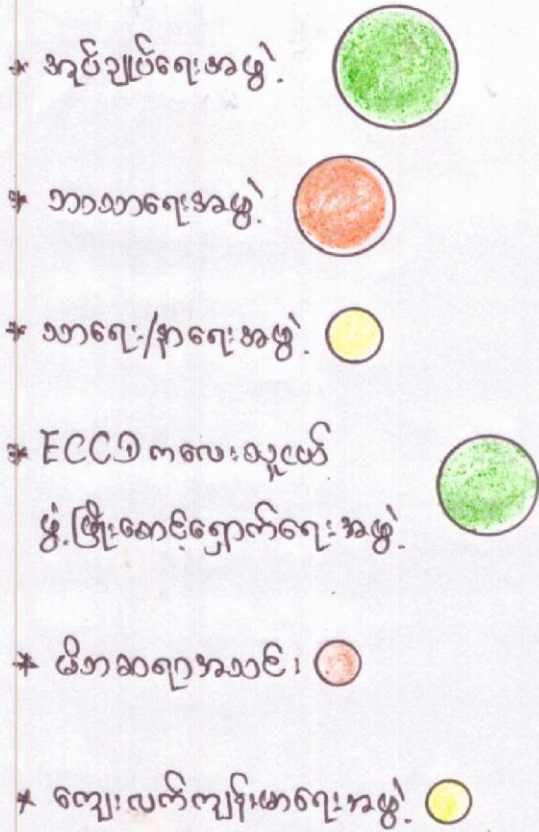 * အုပ်ချုပ်ရေးအဖွဲ့
* ဘာသာရေးအဖွဲ့
* သာရေး/နာရေးအဖွဲ့
* ECCD ကလေးသူငယ်
ဖွံ့ဖြိုးစောင့်ရှောက်ရေးအဖွဲ့
* မိဘဆရာအသင်း
* ကျေးလက်ကျန်းမာရေးအဖွဲ့